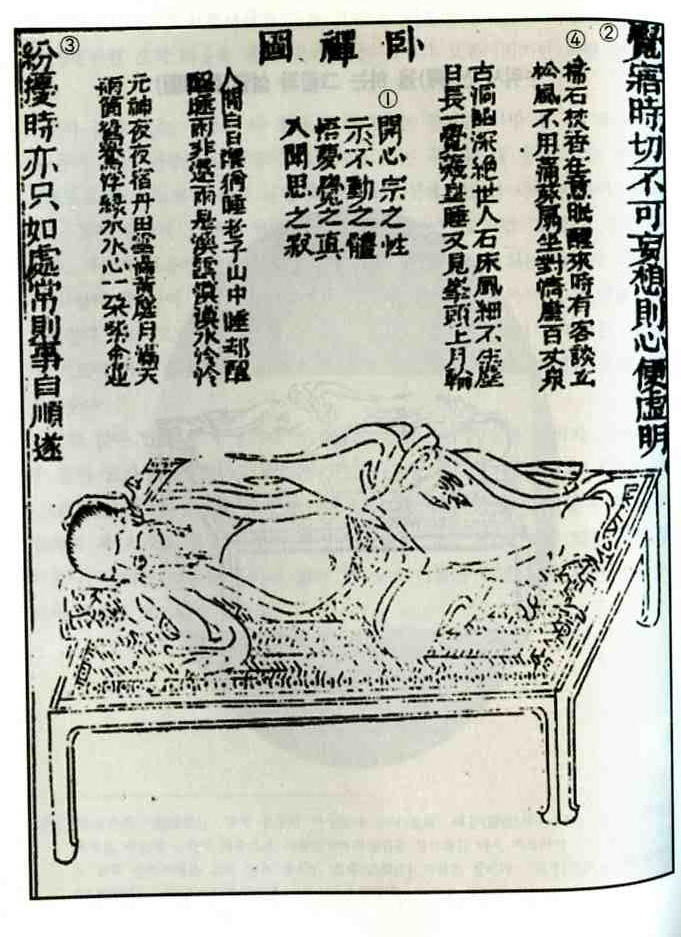 卧禪圖
② 覺寤時切不可妄想則心便虛明
④ 石枕香任意眠醒來時有客談玄
松風不用蒲葵扇坐對靑崖百丈泉
古洞幽深絕世人石床風細不生塵
日長一覺羲皇睡又見峯頭上月輪
① 開心宗之性
示不動之體
悟夢覺之真
入聞思之寂
人間白日醒猶睡老子山中睡却醒
醒睡兩非還兩是溪雲漠漠水泠泠
元神夜夜宿丹田雲滿黃庭月滿天
兩個鴛鴦浮綠水水心一朶紫金蓮
③ 紛擾時亦只如處常則事自順遂